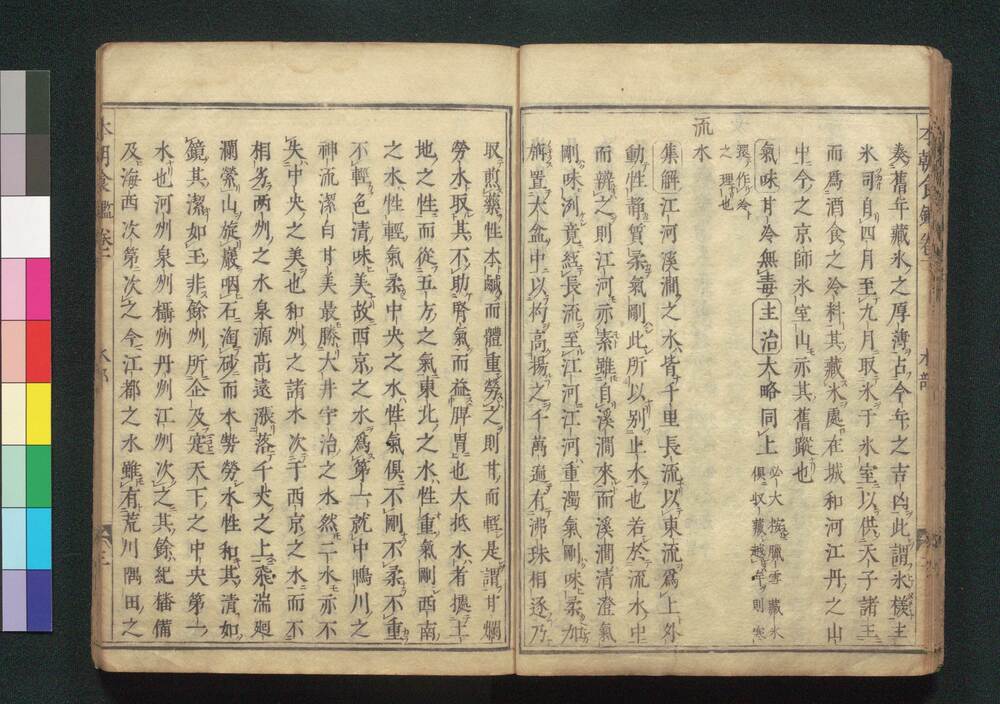 奏舊年藏氷之厚薄占今年之吉凶此謂氷樣主
氷司自四月至九月取氷于氷室以供天子諸王
而爲酒食之冷料其藏氷處在城和河江丹之山
中今之京師氷室山亦其舊蹤也
氣味甘冷無毒主治大略同上
必大按臘雪藏氷
俱収藏越年則寒
還作冷
之理也
流水
集解江河溪澗之水皆千里長流以東流爲上外
動性靜質柔氣剛此所以別止水也若於流水中
而辨之則江河亦素雖自溪澗來而溪澗清澄氣
剛味冽竟經長流至江河江河重濁氣剛味柔如
旃置大盆中以杓高揚之千萬遍有沸珠相逐乃
取煎藥性本鹹而體重勞之則甘而輕是謂甘爛
勞水取其不助腎氣而益脾胃也大抵水者據土
地之性而從五方之氣東北之水性重氣剛西南
之水性輕氣柔中央之水性氣俱不剛不柔不重
不輕色清味美故西京之水爲第一就中鴨川之
神流潔白甘美最勝大井宇治之水然二水亦不
失中央之美也和州之諸水次于西京之水而不
相劣兩州之水泉源高遠漲落千丈之上飛湍廻
瀾縈山旋巖咽石淘砂而水勢勞水性和其清如
鏡其潔如玉非餘州所企及寔天下之中央第一
水也河州泉州攝州丹州江州次之其餘紀播備
及海西次第次之今江都之水雖有荒川隅田之